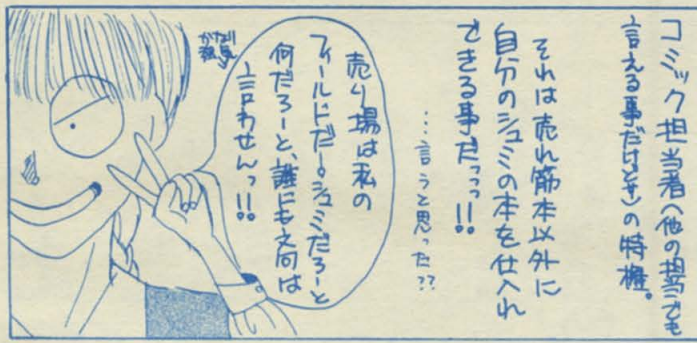 コミック担当者(他の担当でも
言える事だけどサ)の特権。
それは売れ筋本以外に
自分のシュミの本を仕入れ
できる事だっっっ!!
…言うと思った??
売り場は私の
フィールドだーシュミだろーと
何だろーと、誰にも文句は
言わせんっ!!